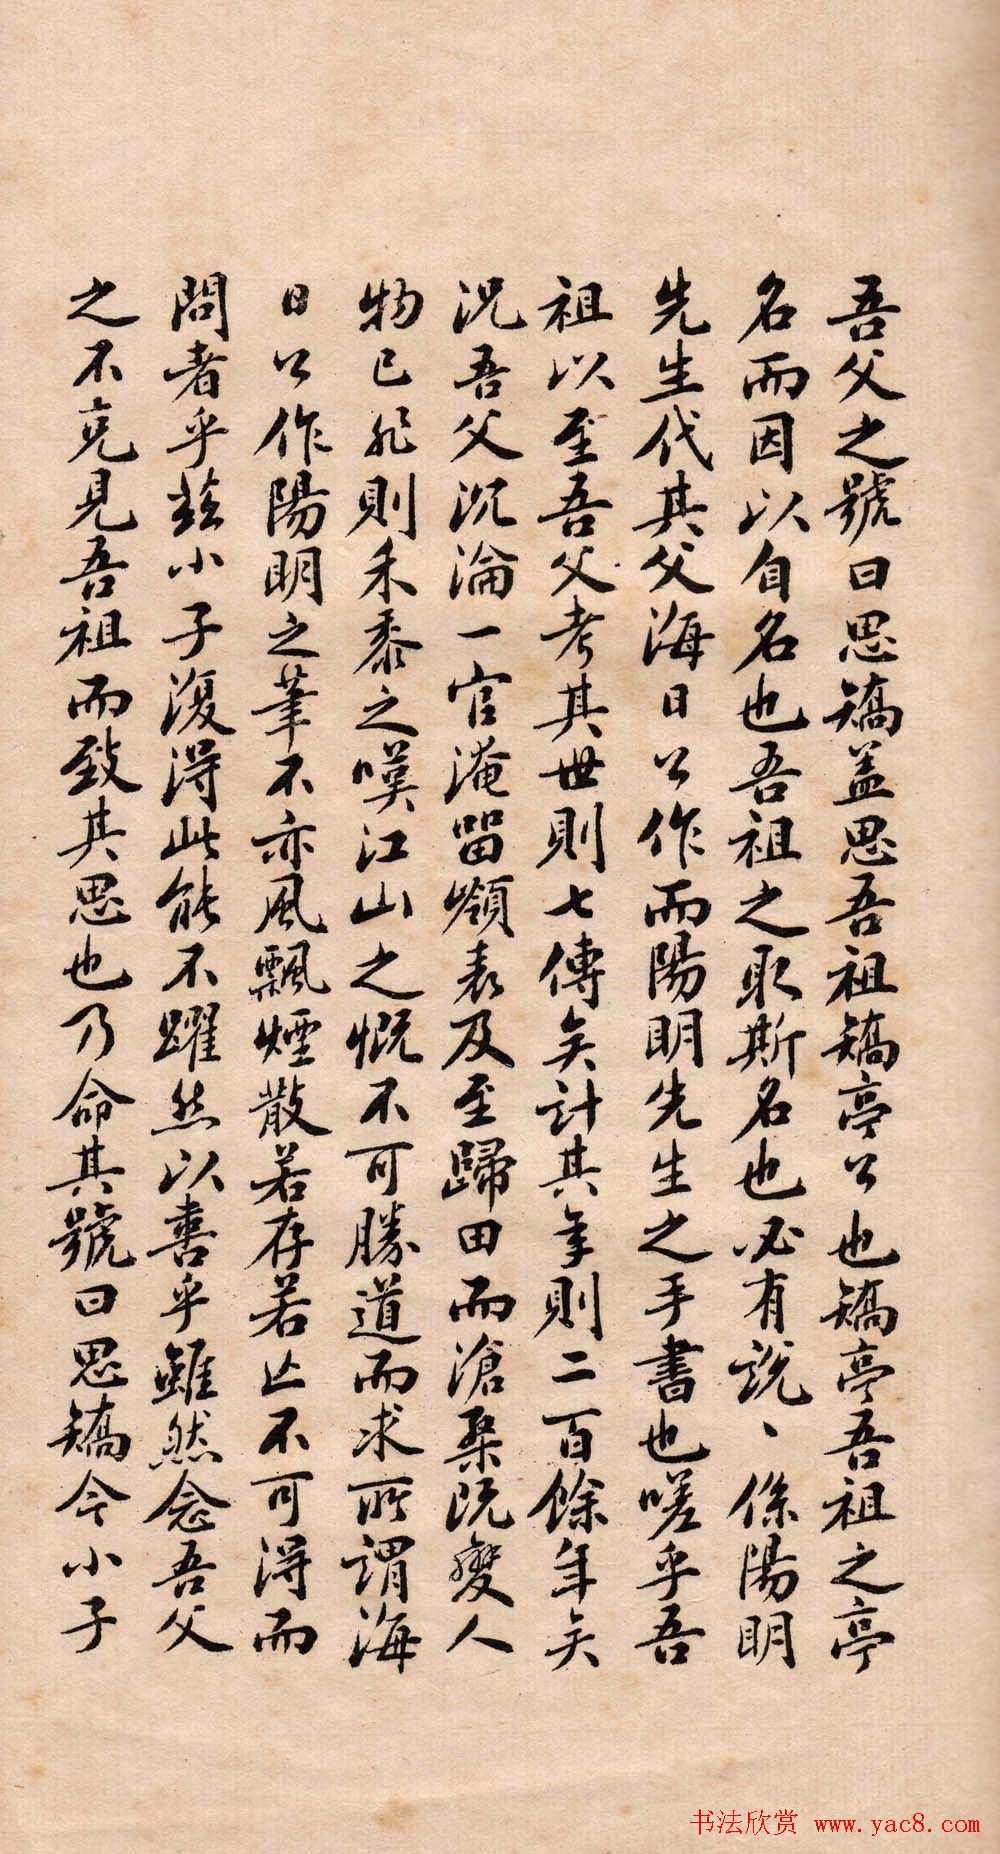 吾父之號曰思矯盖思吾祖矯亭公也矯亭吾祖之亭
名而因以自名也吾祖之取斯名也必有説、係陽明
先生代其父海日公作而陽明先生之手書也嗟乎吾
祖以至吾父考其世則七傳矣計其年則二百餘年矣
況吾父沉淪一官淹留嶺表及至歸田而滄桑既變人
物已非則禾黍之嘆江山之慨不可勝道而求所謂海
日公作陽明之筆不亦風飄煙散若存若亡不可得而
問者乎茲小子復得此能不躍然以喜乎雖然念吾父
之不克見吾祖而致其思也乃命其號曰思矯今小子
书法欣赏 www.yac8.com